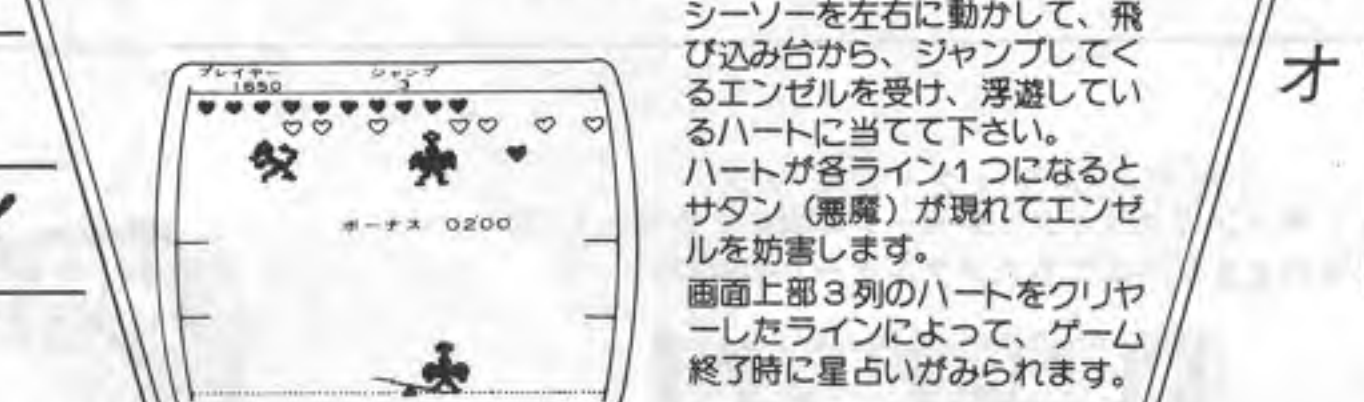 プレイヤー ジャンプ
1650 3
ボーナス 0200
シーソーを左右に動かして、飛
び込み台から、ジャンプしてく
るエンゼルを受け、浮遊してい
るハートに当てて下さい。
ハートが各ライン1つになると
サタン（悪魔）が現れてエンゼ
ルを妨害します。
画面上部3列のハートをクリヤ
ーしたラインによって、ゲーム
終了時に星占いがみられます。
オ